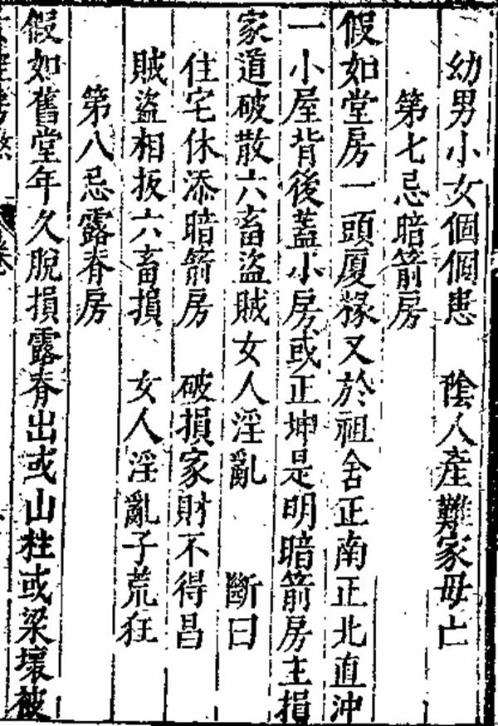 幼男小女個個患　陰人產難家毋亡
第七忌暗箭房
假如堂房一頭厦㮨又於祖舍正南正北直沖
一小屋背後蓋小房或正坤是明暗箭房主損
家道破散六畜盜賊女人淫亂　斷曰
住宅休添暗箭房　破損家財不得昌
賊盜相扳六畜損　女人淫亂子荒狂
第八忌露脊房
假如舊堂年久脫損露脊出或山柱或梁壞被